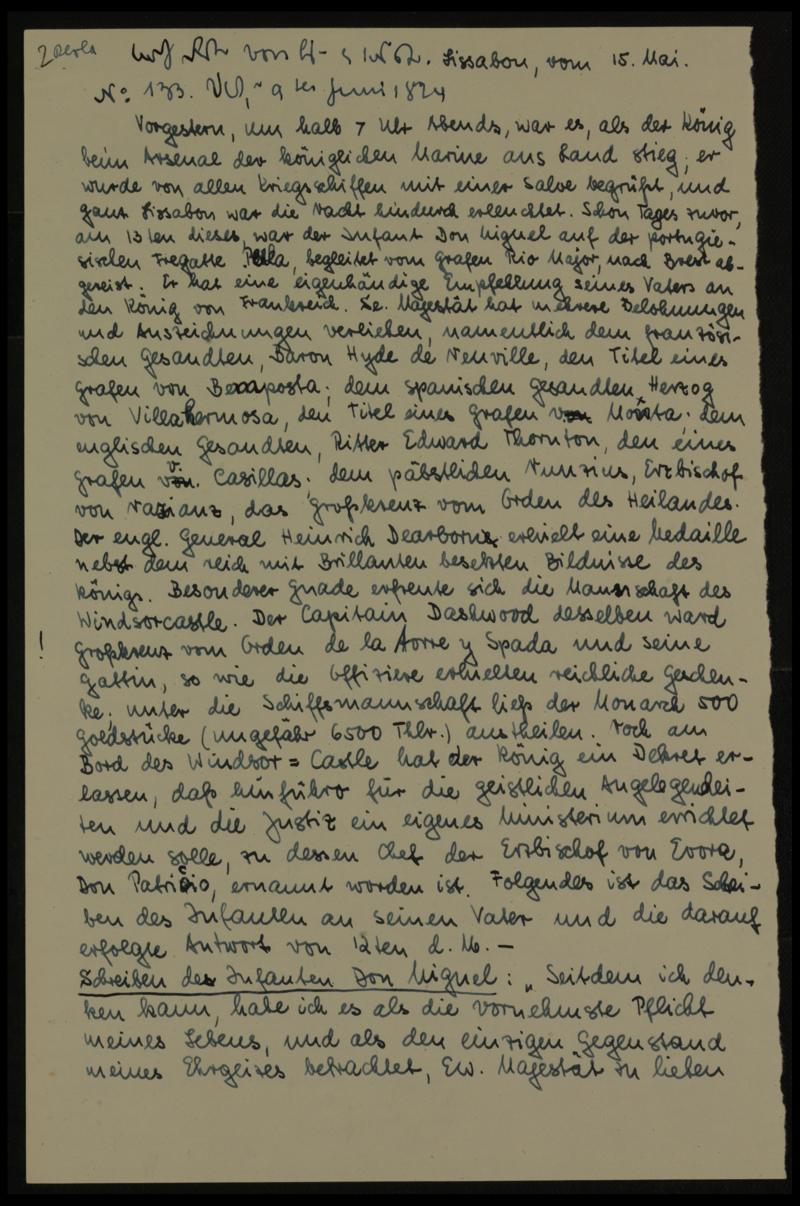 vom Lissabon, vom 15. Mai.
No: 133. 9ten Juni 1824
Vorgestern, um halb 7 Uhr Abends, war es, als der König
beim Arsenal der königlichen Marine ans Land stieg; er
wurde von allen Kriegsschiffen mit einer Salve begrüßt, und
ganz Lissabon war die Nacht hindurch erleuchtet. Schon Tages zuvor,
am 13ten dieses, war der Infant Don Miguel auf der portugie-
sischen Fregatte Perla, begleitet vom Grafen Rio Major, nach Brest ab-
gereist. Er hat eine eigenhändige Empfehlung seines Vaters an
den König von Frankreich. Se. Majestät hat mehrere Belohnungen
und Auszeichnungen verliehen, namentlich dem französi-
schen Gesandten, Baron Hyde de Neuville, den Titel eines
Grafen von Bexaposta; dem spanischen Gesandten, Herzog
von Villahermosa, den Titel eines Grafen von Moista; dem
englischen Gesandten, Ritter Edward Thornton, den eines
Grafen v. Casillas; dem päbstlichen Nunzius, Erzbischof
von Nazianz, das Großkreuz vom Orden des Heilandes.
Der engl. General Heinrich Dearborn erhielt eine Medaille
nebst dem reich mit Brillanten besetzten Bildnisse des
Königs. Besonderer Gnade erfreute sich die Mannschaft des
Windsorcastle. Der Capitain Dashwood desselben ward
! Großkreuz vom Orden de la Torre y Spada und seine
Gattin, so wie die Offiziere erhielten reichliche Geschen-
ke; unter die Schiffsmannschaft ließ der Monarch 500
Goldstücke (ungefähr 6500 Thlr.) austheilen. Noch am
Bord des Windsor=Castle hat der König ein Dekret er-
lassen, daß hinführo für die geistlichen Angelegenhei-
ten und die Justiz ein eigenes Ministerium errichtet
werden solle, zu dessen Chef der Erzbischof von Evora,
Don Patricio, ernannt worden ist. Folgendes ist das Schrei-
ben des Infanten an seinen Vater und die darauf
erfolgte Antwort von 12ten d. M. —
Schreiben des Infanten Don Miguel: „Seitdem ich den-
ken kann, habe ich es als die vornehmste Pflicht
meines Lebens, und als den einzigen Gegenstand
meines Ehrgeizes betrachtet, Ew. Majestät zu lieben